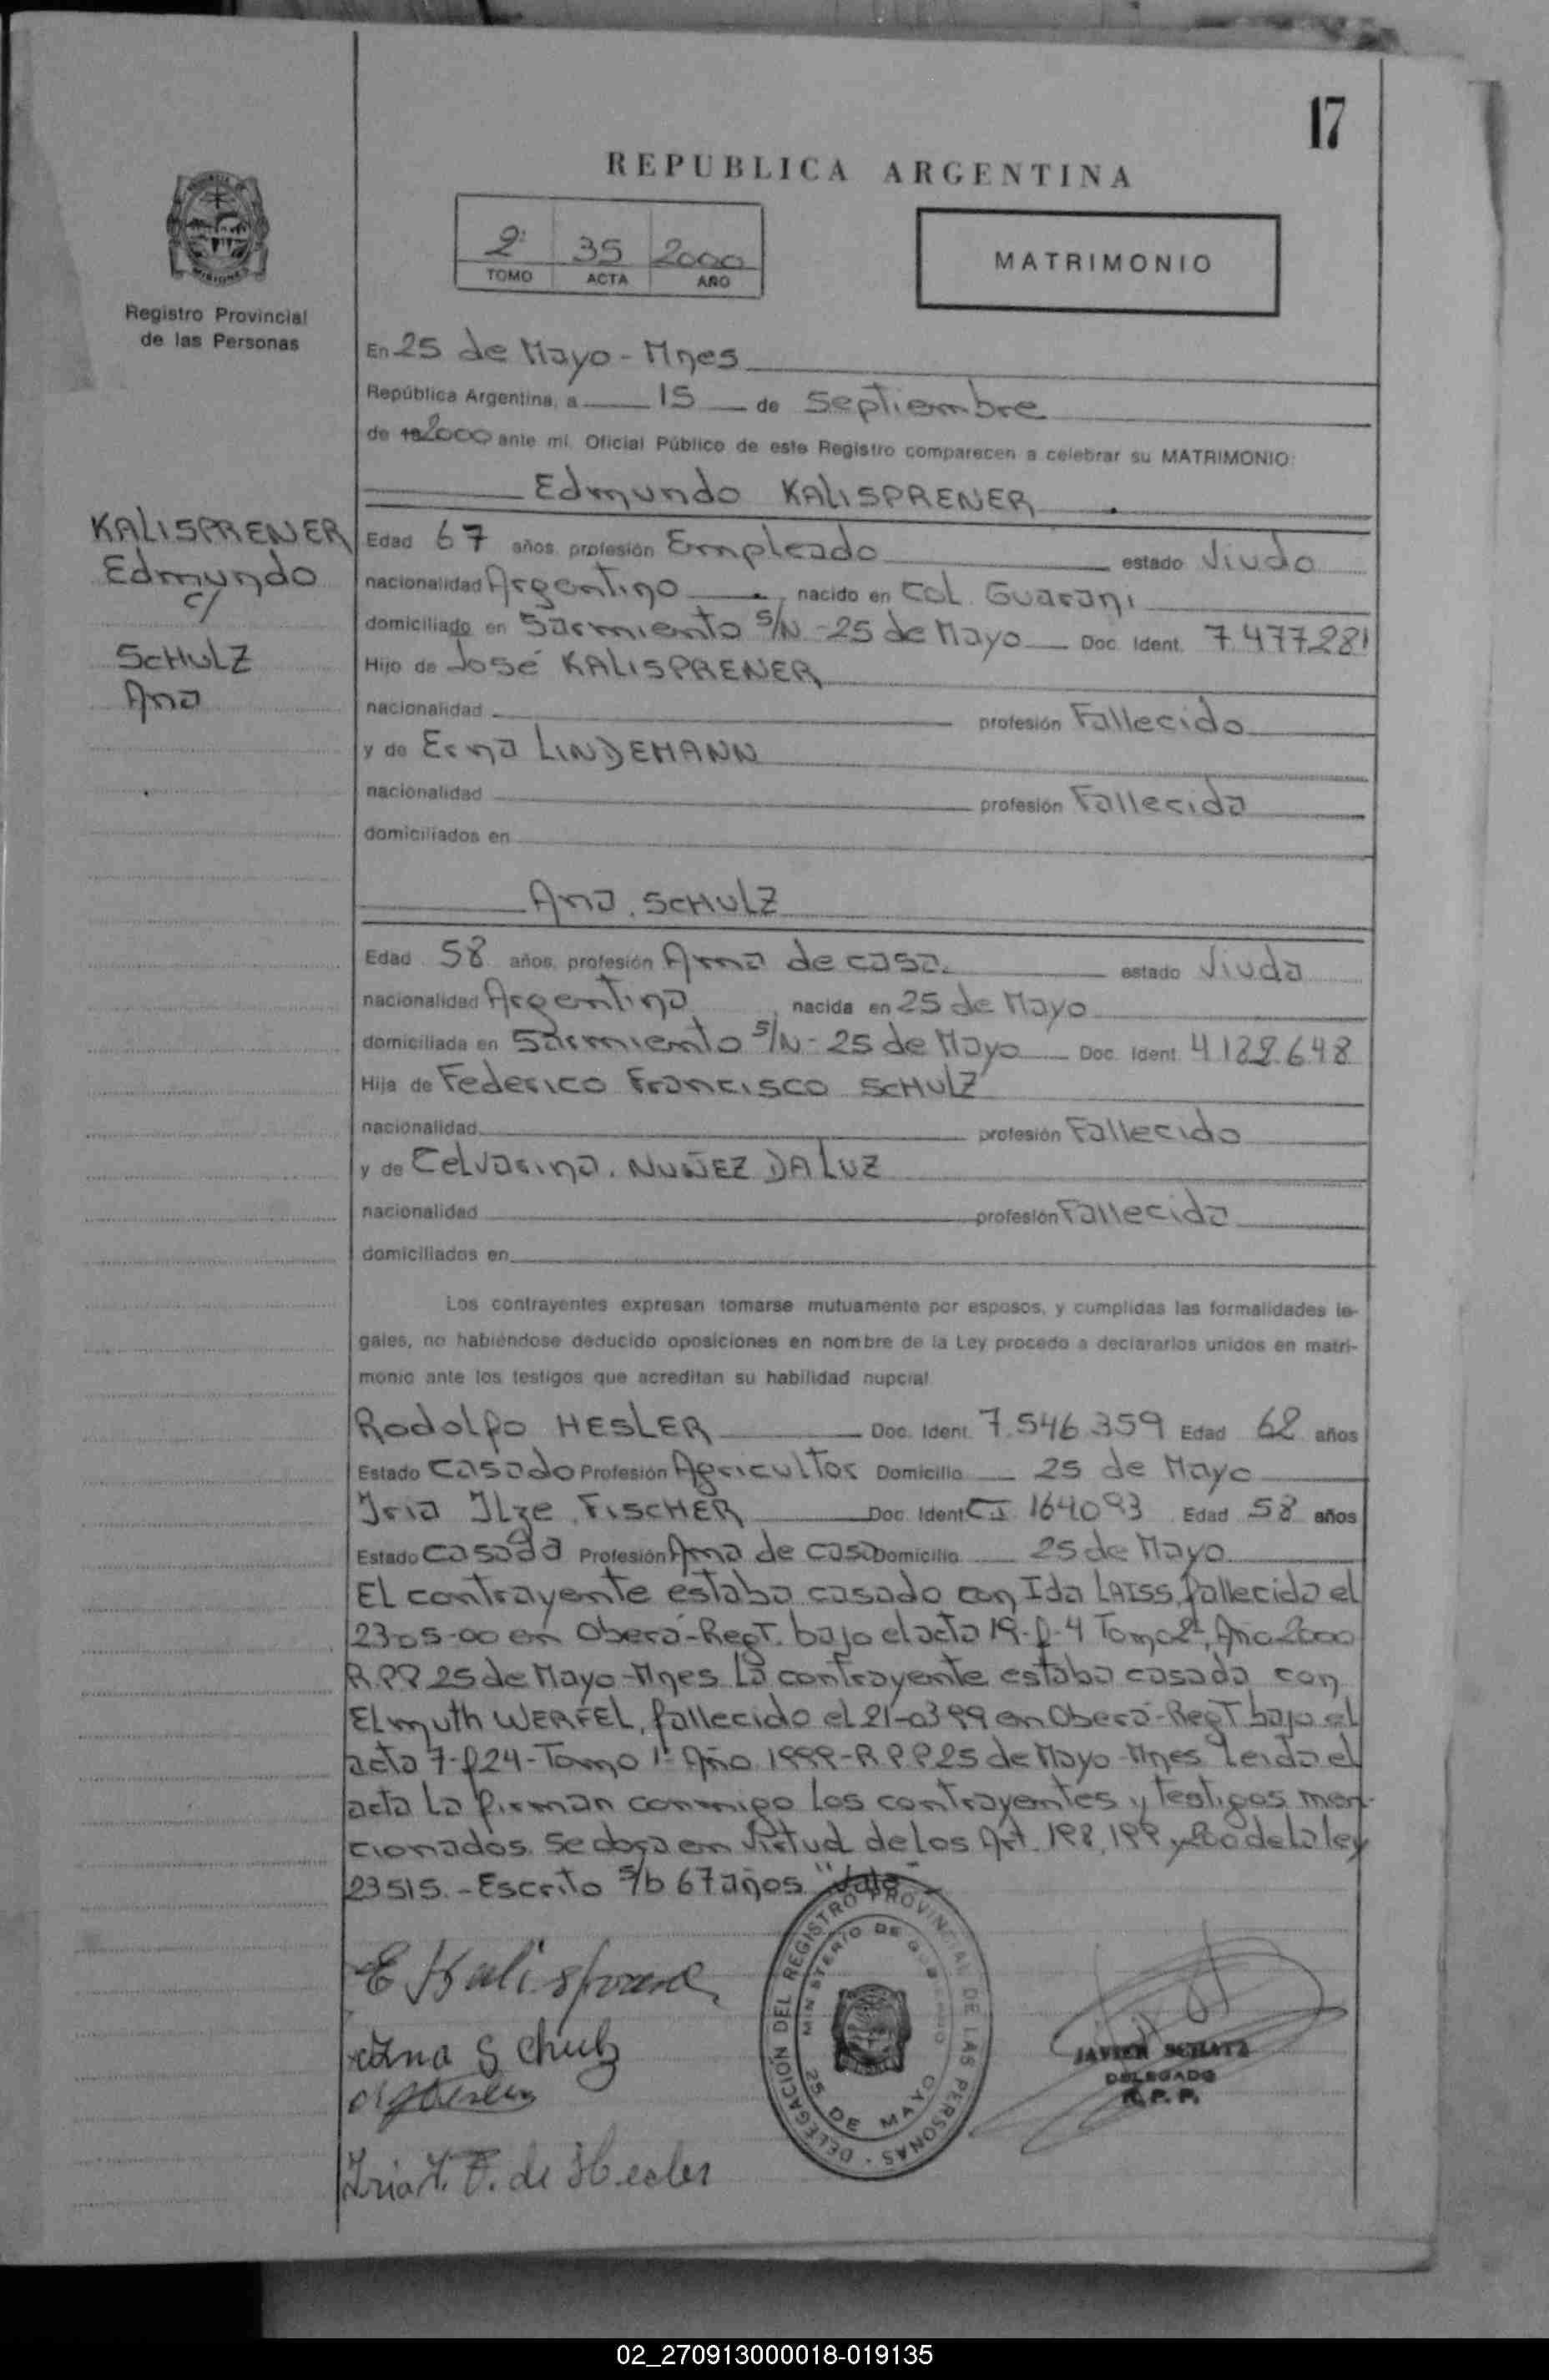 17
REPUBLICA ARGENTINA
2º 35 2000
TOMO ACTA AÑO
MATRIMONIO
Registro Provincial
de las Personas
En 25 de Mayo - Mnes
República Argentina, a 15 de Septiembre
de 19 2000 ante mi, Oficial Público de este Registro comparecen a celebrar su MATRIMONIO:
Edmundo KALISPRENER
KALISPRENER
Edmundo
c/
SCHULZ
Ana
Edad 67 años, profesión Empleado estado Viudo
nacionalidad Argentino, nacido en Col. Guarani
domiciliado en Sarmiento S/N - 25 de Mayo Doc. Ident. 7.477.281
Hijo de José KALISPRENER
nacionalidad profesión Fallecido
y de Erna LINDEMANN
nacionalidad profesión Fallecida
domiciliados en
Ana. SCHULZ
Edad 58 años, profesión Ama de casa. estado Viuda
nacionalidad Argentina, nacida en 25 de Mayo
domiciliada en Sarmiento S/N - 25 de Mayo Doc. Ident. 4.188.648
Hija de Federico Francisco SCHULZ
nacionalidad profesión Fallecido
y de Celvarina. NUÑEZ DA LUZ
nacionalidad profesión Fallecida
domiciliados en
Los contrayentes expresan tomarse mutuamente por esposos, y cumplidas las formalidades le-
gales, no habiéndose deducido oposiciones en nombre de la Ley procedo a declararlos unidos en matri-
monio ante los testigos que acreditan su habilidad nupcial
Rodolfo HESLER Doc. Ident. 7.546.359 Edad 62 años
Estado Casado Profesión Agricultor Domicilio 25 de Mayo
Iria Ilze. FISCHER Doc. Ident C.I. 164093 Edad 58 años
Estado Casada Profesión Ama de casa Domicilio 25 de Mayo
El contrayente estaba casado con Ida LAISS, fallecida el
23-05-00 en Oberá-Regt. bajo el acta 19-f-4 Tomo 2º, Año 2000
R.P.P 25 de Mayo-Mnes La contrayente estaba casada con
Elmuth WERFEL, fallecido el 21-03-99 en Oberá-Regt bajo el
acta 7-f 24-Tomo 1º Año 1999-R.P.P 25 de Mayo-Mnes Leida el
acta la firman conmigo los contrayentes y testigos men-
cionados. Se dogra en Virtud de los Art. 198, 199 y 200 de la ley
23515.- Escrito s/b 67 años "Vale"-
DELEGACIÓN DEL REGISTRO PROVINCIAL DE LAS PERSONAS
MINISTERIO DE GOBIERNO
25 DE MAYO
E Kalisprener
Ana Schulz
Iria I. F. de Hesler
JAVIER
DELEGADO
R.P.P.
02_270913000018-019135